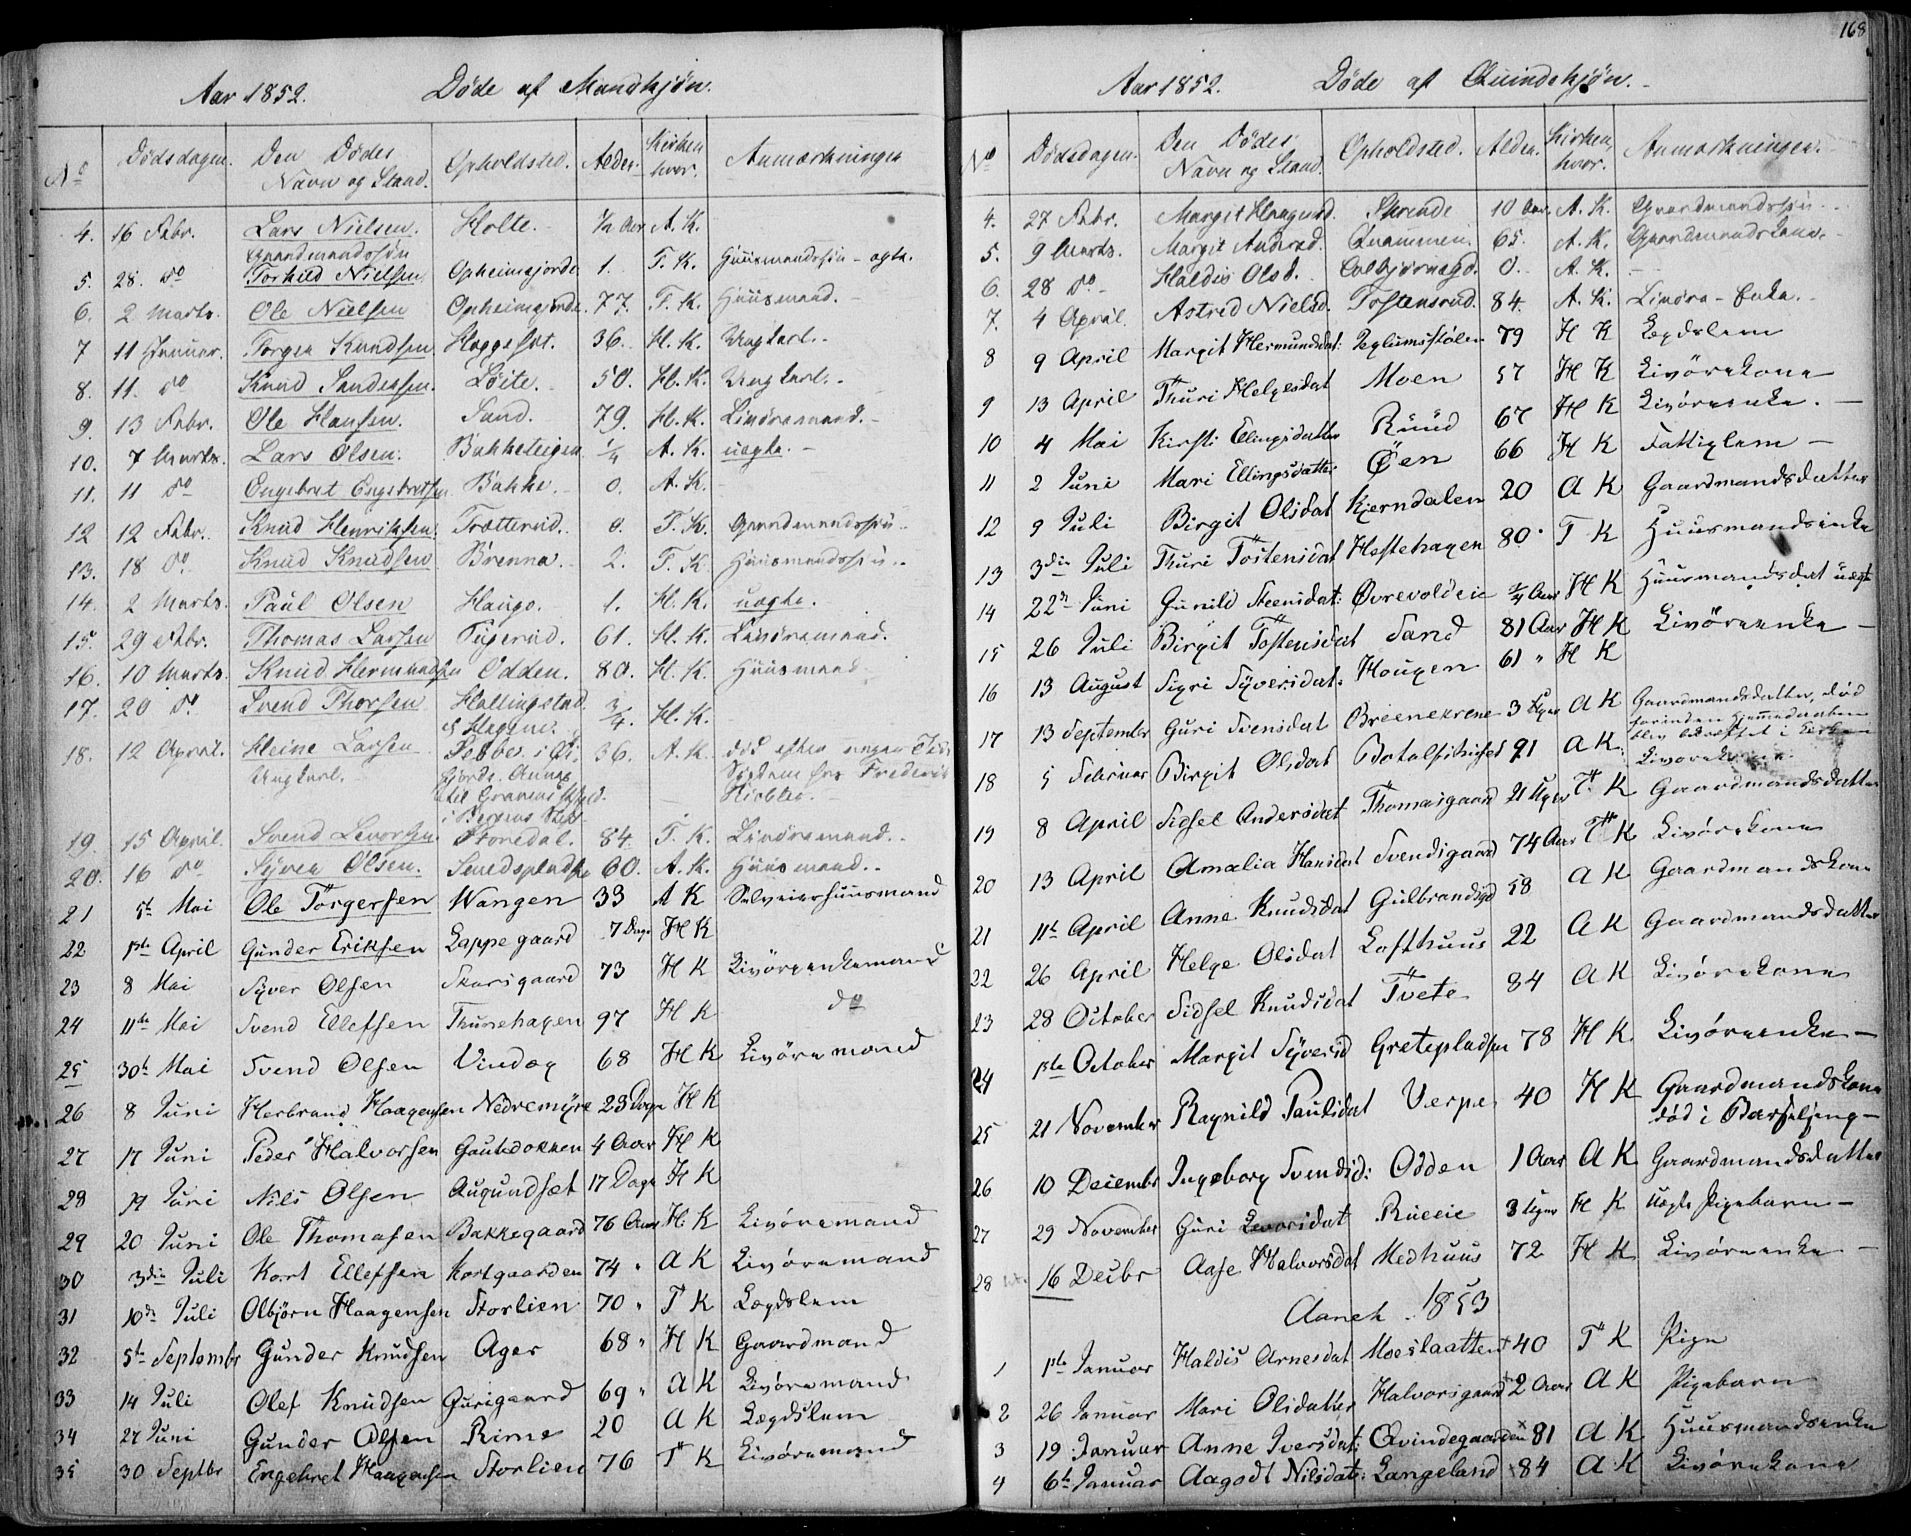 168
Aar 1852. Døde af Mandkjøn.
No Dødsdagen. Den Dødes Navn og Stand. Opholdsted. Alder. Kirken hvor. Anmærkninger
4. 16 Febr. Lars Nielsen. Holte. A. K.
Gaardmandssøn
5. 28. do Torkild Nielsen Opheimsjorde 1. T. K. Huusmandssøn - ægte.
6. 2 Marts. Ole Nielsen Opheimsjorde 77. T. K. Huusmand.
7 11 Januar. Torger Knudsen Haggeset. 36. H. K. Ungkarl.
8. 11. do Knud Sandersen. Löite. 50. H. K. Ungkarl.
9. 13 Febr. Ole Hansen. Sand. 79. H. K. Livøremand.
10. 7 Marts. Lars Olsen. Bakketeigen 1/4 A. K. uægte.
11. 11 do Engebret Engebretsen Bakke. 0. A. K.
12 12 Febr. Knud Henriksen. Trøtterud. 0. T. K. Gaardmandssøn.
13. 18 do Knud Knudsen Brenna. 2. T. K. Huusmandssøn.
14. 2 Marts. Paul Olsen Haugo. 1. H. K. uægte.
15. 29 Febr. Thomas Larsen 61. H. K. Livøremand.
16. 10 Marts. Knud Hermundsen Odden. 80. H. K. Huusmand
17. 20 do Svend Thorsen Hallingstad 3/4. H. K.
18. 12 April. Heine Larsen 36. A. K. død efter
Ungkarl.
19. 15 April. Svend Levorsen Storedal. 84. T. K. Livøremand.
20. 16 do Syver Olsen. Svendspladsen 60. A. K. Huusmand.
21 5te Mai Ole Torgersen Wangen 33 A K Selveierhuusmand
22 1ste April Gunder Eriksen Lappegaard 7 Dage H K
23 8 Mai Syver Olsen Skarsgaard 73 H K Livöreenkemand
24 11te Mai Svend Ellefsen Thunehagen 97 H K do
25 30te Mai Svend Olsen Vindeg 68 H K Livöremand
26 8 Juni Herbrand Haagensen Nedremyre 23 Dage H K
27 17 Juni Peder Halvorsen Gautedokken 4 Aar H K
28 19 Juni Nils Olsen Augundset 17 Dage H K
29 20 Juni Ole Thomasen Bakkegaard 76 Aar H. K Livöremand
30 3die Juli Kort Ellefsen Kortgaarden 74 " A K Livöremand
31 10de Juli Olbjörn Haagensen Storlien 70 " T K Lægdslem
32 5te Septembr Gunder Knudsen Ager 68 " H K Gaardmand
33 14 Juli Olef Knudsen Gurigaard 69 " A K Livöremand
34 27 Juni Gunder Olsen Rime 20 A K Lægdslem
35 30 Septbr Engebret Haagensen Storlien 76 T K Livöremand
Aar 1852. Døde af Quindekjøn.
No Dødsdagen. Den Dødes Navn og Stand. Opholdsted. Alder. Kirken, hvor. Anmærkninger.
4. 27 Febr. Margit Haagensd. 10 Aar. A. K. Gaardmands
5. 9 Marts. Margit Andersd. Quammen. 65. A. K. Gaardmandskone.
6. 28 do Haldis Olsd. 0. A. K.
7. 4 April. Astrid Nielsd. Tostensrud. 84. A. K. Livøre-Enke.
8 9 April Margit Hermundsdat: Teglumsstølen 79 H K Legdslem
9 13 April Thuri Helgesdat Moen 57 H K Livörekone
10 4 Mai Kirsti Ellingsdatter Ruud 67 H K Livöreenke.
11 2 Juni Mari Ellingsdatter Öen 66 H K Fattiglem
12 9 Juli Birgit Olsdat Kjerndalen 20 A K Gaardmandsdatter
13 3die Juli Thuri Tostensdat Hestehagen 80 T K Huusmandsenke
14 22de Juni Gunild Steensdat: Øvrevoldeie 3/4 Aar H K Huusmandsdat uægte
15 26 Juli Birgit Tostensdat Sand 81 Aar H K Livöreenke
16 13 August Sigri Syversdat: Hougen 61 " H K
17 13 September Guri Svensdat Breenekrene 3 Uger A K Gaardmandsdatter, død
forinden Hjemmedaaben
blev bekræftet i Kirken
18 5 Februar Birgit Olsdat 91 A K
19 8 April Sidsel Andersdat Thomasgaard 21 Uger T. K Gaardmandsdatter
20 13 April Amalia Hansdat Svendsgaard 74 Aar T K Livörekone
21 11te April Anne Knudsdat Gulbrandsgd 58 A K Gaardmandskone
22 26 April Helge Olsdat Lofthuus 22 A K Gaardmandsdatter
23 28 October Sidsel Knudsdat Tvete 84 A K Livörekone
24 1ste October Margit Syversd Gretepladsen 78 H K Livöreenke
25 21 November Ragnild Paulsdat Verpe 40 H K Gaardmandskone
død i Barselseng
26 10 Decembr Ingeborg Svendsd: Odden 1 Aar A K Gaardmandsdatter
27 29 November Guri Levorsdat Rueeie 3 Uger H K uægte Pigebarn
28 16 Decbr Aase Halvorsdat Medhuus 72 H K Livöreenke
Aaret 1853
1 1ste Januar Haldis Arnesdat Moeslaatten 40 T K Pige
2 26 Januar Mari Olsdatter Halvorsgaard 2 Aar A K Pigebarn
3 19 Januar Anne Iversdat: Qvindegaarden 81 A K Huusmandsenke
4 6te Januar Aagodt Nilsdat: Langeland 84 A K Livörekone